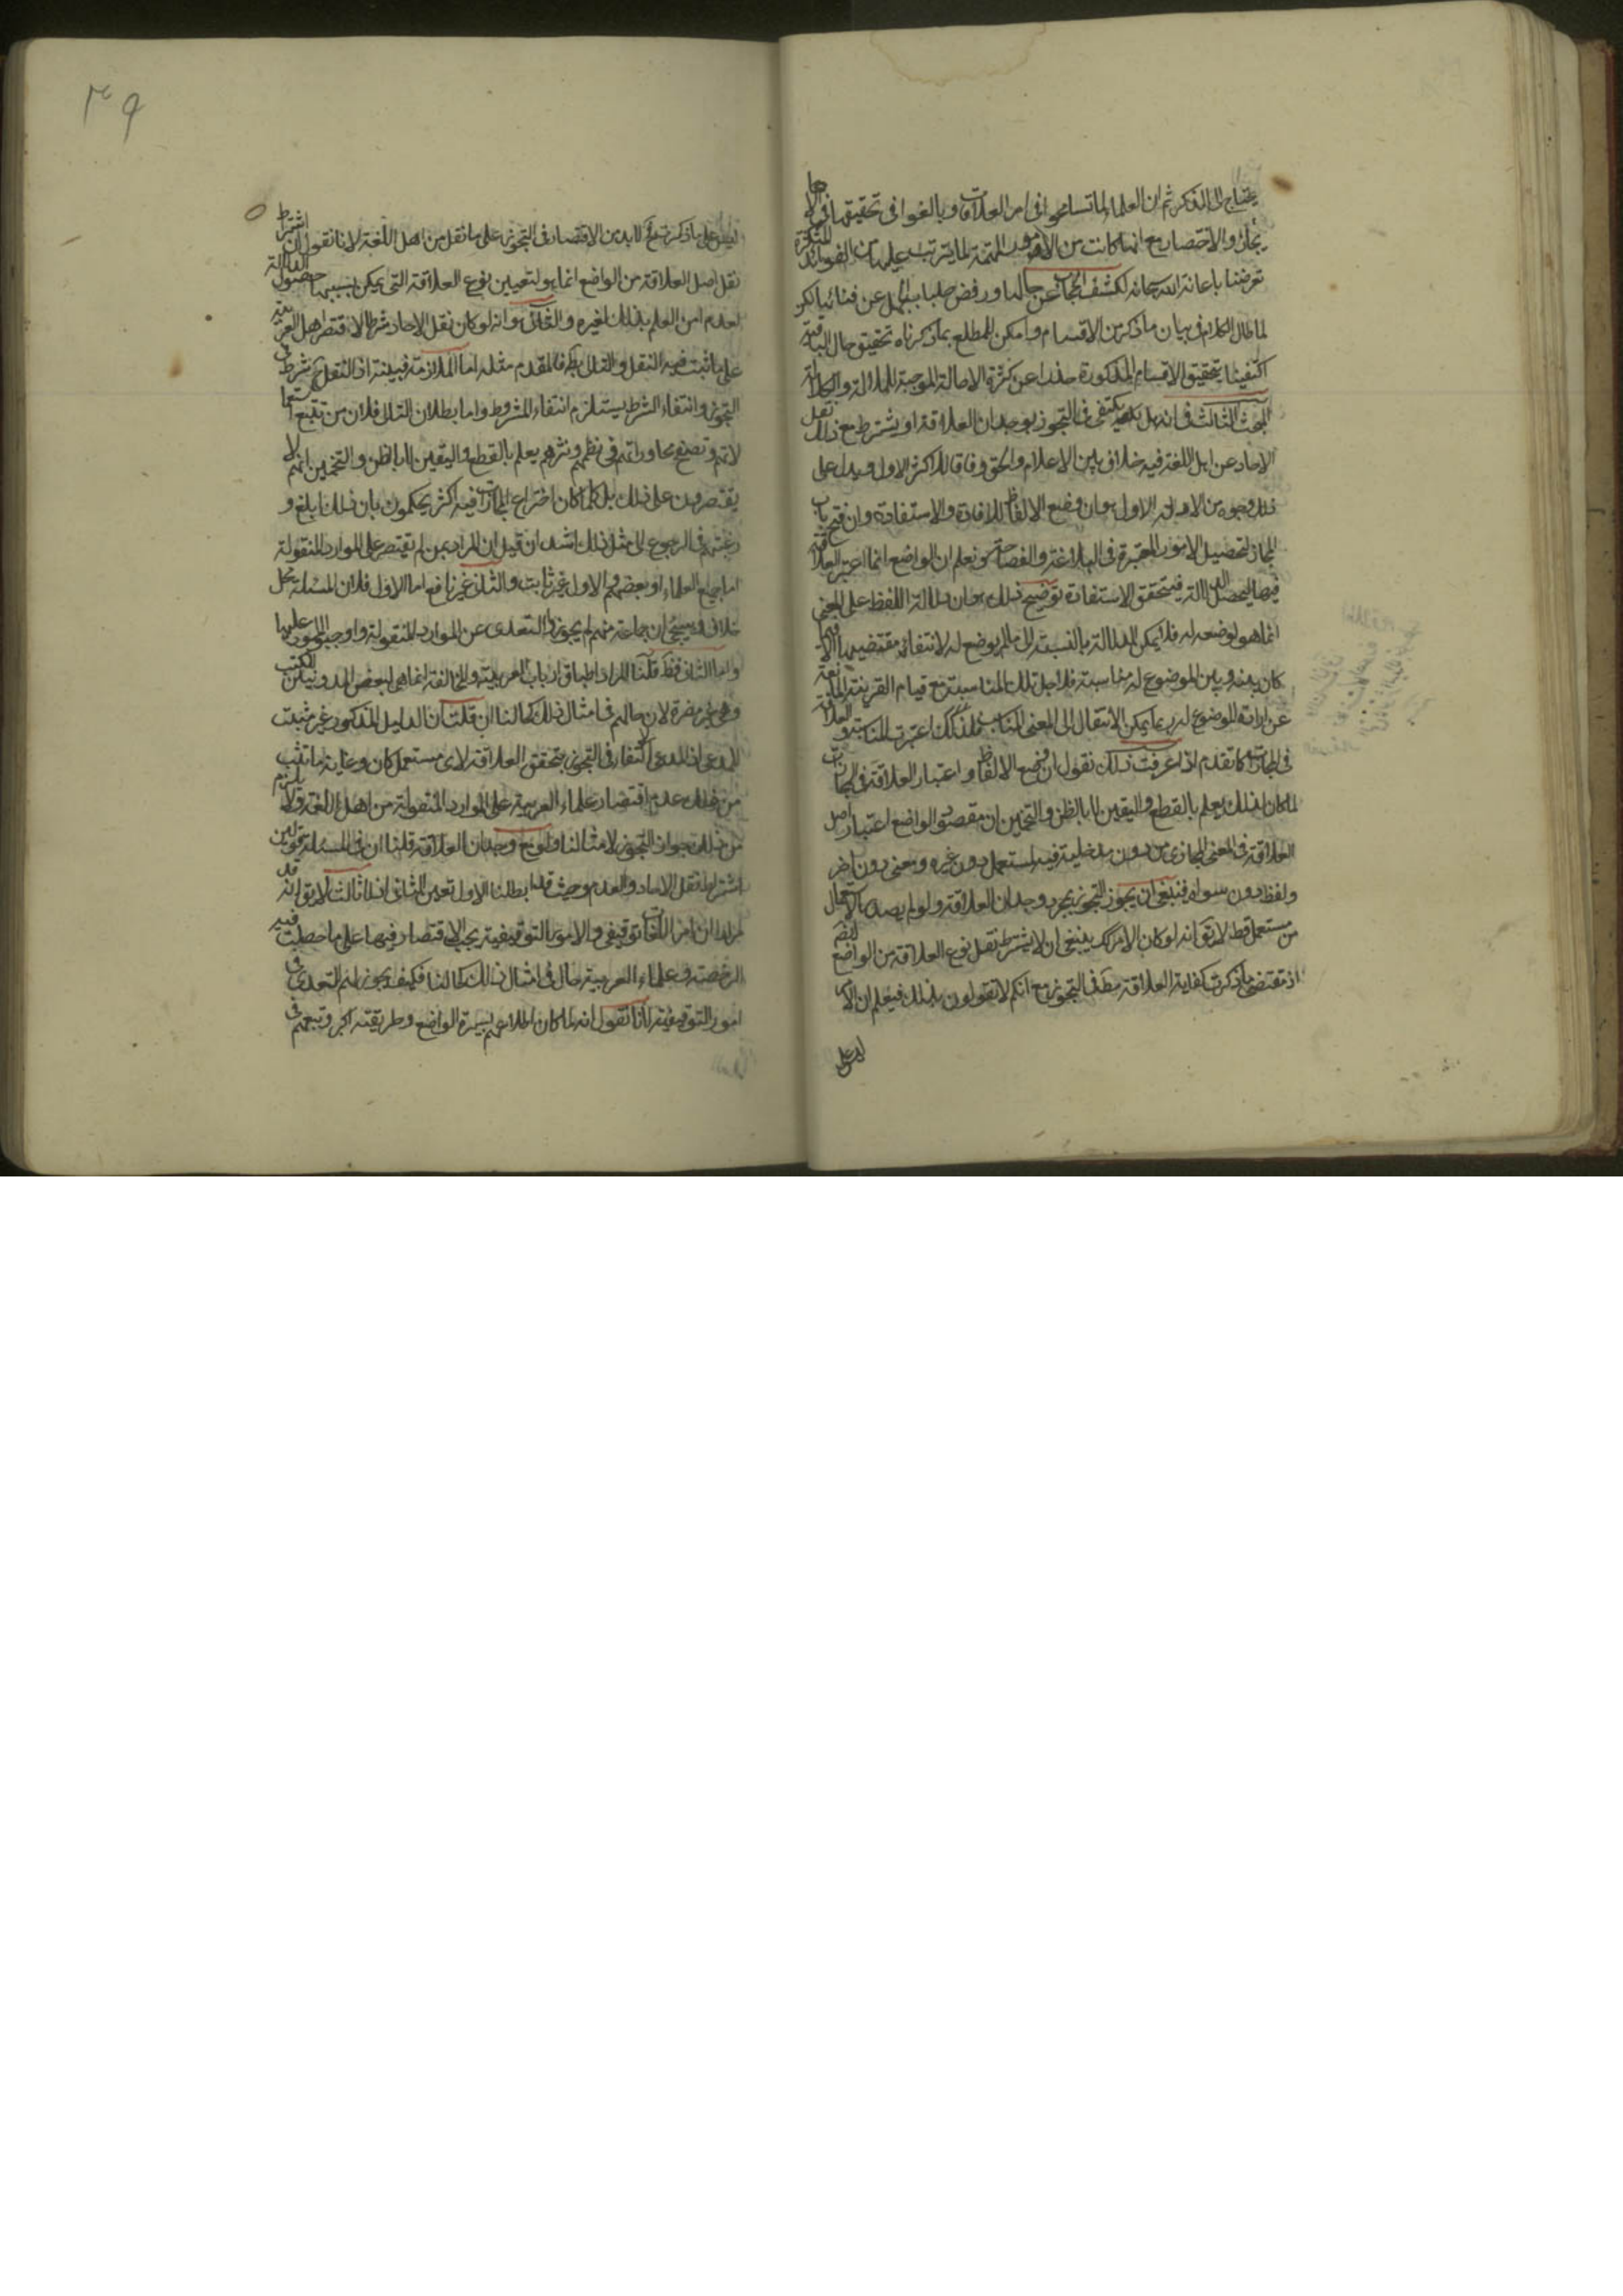 يحتاج الى الذكر ثم ان العلماء لما تسامحوا فى امر العلاقات وبالغوا فى تحقيقها فى
والاختصار مع انها كانت من الامور المهمة لما يترتب عليها من الفوائد
تعرضنا باعانة الله سبحانه لكشف الحجاب عن جمالها ورفض جلبابها عن
لما طال الكلام فى بيان ما ذكر من الاقسام وامكن للمطلع بما ذكرناه تحقيق حال الباقية
اكتفينا بتحقيق الاقسام المذكورة حذرا عن كثرة الاطالة الموجبة للملالة والكلالة
البحث الثالث فى انه هل يكتفى فى التجوز بوجدان العلاقة او يشترط مع ذلك نقل
الاحاد عن اهل اللغة فيه خلاف بين الاعلام والحق وفاقا للاكثر الاول ويدل على
ذلك وجوه من الادلة الاول هو ان وضع الالفاظ للافادة والاستفادة وان فتح باب
المجاز لتحصيل الامور المعتبرة فى البلاغة والفصاحة ونعلم ان الواضع انما اعتبر العلاقة
فيها ليحصل الدلالة فيتحقق الاستفادة توضيح ذلك هو ان دلالة اللفظ على المعنى
انما هو لوضعه له فلا يمكن الدلالة بالنسبة الى ما لم يوضع له لانتفاء مقتضيها
كان بينه وبين الموضوع له مناسبة فلاجل تلك المناسبة مع قيام القرينة المانعة
عن ارادة الموضوع له ربما يمكن الانتقال الى المعنى المناسب فلذلك اعتبرت المناسبة والعلاقة
فى المجازات كما تقدم اذا عرفت ذلك نقول ان وضع الالفاظ واعتبار العلاقة فى المجازات
لما كان لذلك يعلم بالقطع واليقين لا بالظن والتخمين ان مقصود الواضع اعتبار اصل
العلاقة فى المعنى المجازى من دون مدخلية فيه لمستعمل دون غيره ومعنى دون اخر
ولفظ دون سواه فينبغى ان يجوز التجوز بمجرد وجدان العلاقة ولو لم يصدر الاستعمال
من مستعمل قط لا يق انه لو كان الامر كك ينبغى ان لا يشترط نقل نوع العلاقة من الواضع
اذ مقتضى ما ذكرت كفاية العلاقة مط فى التجوز مع انكم لا تقولون بذلك فيعلم ان الامر
ليس على
ليس على ما ذكرت فلا بد من الاقتصار فى التجوز على ما نقل من اهل اللغة لانا نقول ان اشتراط
نقل اصل العلاقة من الواضع انما هو لتعيين نوع العلاقة التى يمكن بسببها حصول الدلالة
لعدم امن العلم بذلك لغيره والثانى هو انه لو كان نقل الاحاد شرطا لاقتصر اهل العربية
على ما ثبت فيه النقل والتالى بط فالمقدم مثله اما الملازمة فبينة اذ النقل شرط فى
التجوز وانتفاء الشرط يستلزم انتفاء المشروط واما بطلان التالى فلان من تتبع استعما
لاتهم وتصفح محاوراتهم فى نظمهم ونثرهم يعلم بالقطع واليقين لا بالظن والتخمين انهم لا
يقتصرون على ذلك بل كلما كان اختراع المجازات فيه اكثر يحكمون بان ذلك ابلغ و
رغبتهم فى الرجوع الى مثل ذلك اشد ان قيل ان المراد بمن لم يقتصر على الموارد المنقولة
اما جميع العلماء او بعضهم والاول غير ثابت والثانى غير نافع اما الاول فلان المسئلة محل
خلاف وسيجئ ان جماعة منهم لم يجوزوا التعدى عن الموارد المنقولة واوجبوا الجمود عليها
واما الثانى فظ قلنا المراد اطباق ارباب العربية والمخالفة انما هى لبعض المدونين للكتب
وهى غير مضرة لان حالهم فى امثال ذلك كحالنا ان قلت ان الدليل المذكور غير مثبت
للمدعى اذ المدعى اكتفاء فى التجوز بتحقق العلاقة لاى مستعمل كان وغاية ما ثبت
من ذلك عدم اقتصار علماء العربية على الموارد المنقولة من اهل اللغة ولا يلزم
من ذلك جواز التجوز لامثالنا ولو مع وجدان العلاقة قلنا ان فى المسئلة قولين
اشتراط نقل الاحاد والعدم وحيث قد ابطلنا الاول تعين الثانى اذ لا ثالث لا يق انه قد
مر ان امر اللغات توقيفى والامور التوقيفية يجب الاقتصار فيها على ما حصلت فيه
الرخصة وعلماء العربية حالهم فى امثال ذلك كحالنا فكيف يجوز لهم التعدى فى
امور التوقيفية لانا نقول انه لما كان اطلاعهم بسيرة الواضع وطريقته اكثر وتتبعهم فى